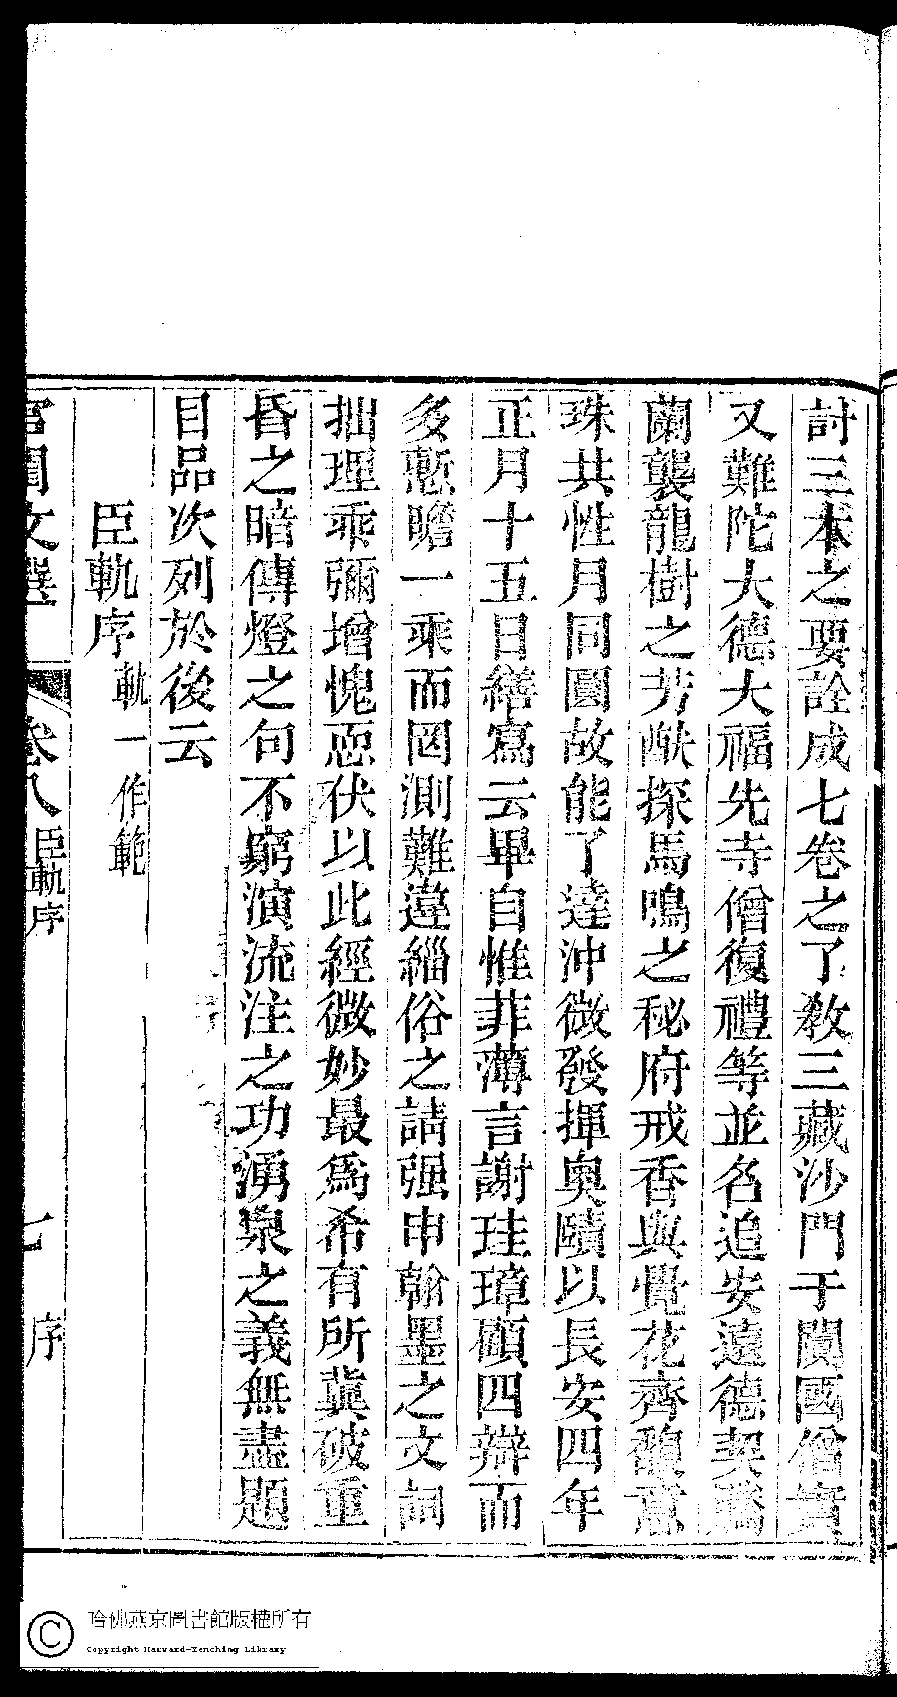 討三本之要詮成七卷之了教三藏沙門于闐國僧實
又難陀大德大福先寺僧復禮等並名追安遠德契騰
蘭襲龍樹之芳猷探馬鳴之秘府戒香與覺花齊馥意
珠共性月同圓故能了達沖微發揮奧賾以長安四年
正月十五日繕寫云畢自惟菲薄言謝珪璋顧四辯而
多慙瞻一乘而罔測難違緇俗之請强申翰墨之文詞
拙理乖彌增愧恧伏以此經微妙最爲希有所冀破重
昏之暗傳燈之句不窮演流注之功湧泉之義無盡題
目品次列於後云
臣軌序 軌一作範
宮閨文選 卷八 臣軌序 七 序
哈佛燕京圖書館版權所有
Copyright Harvard-Yenching Library